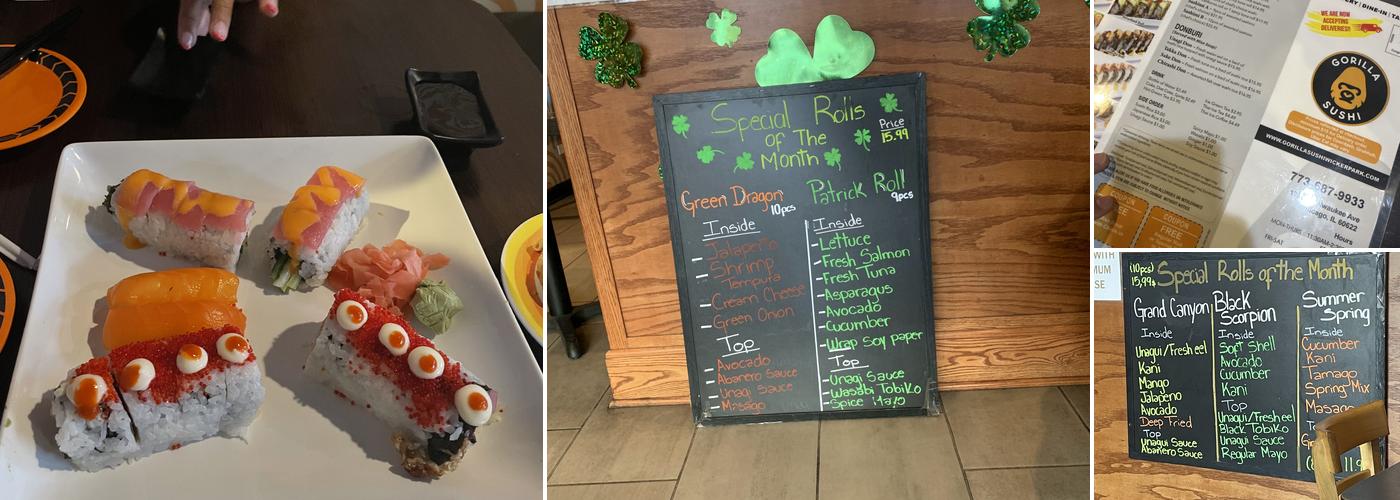 Special Rolls
of The
Month
Price
15.99
Green Dragon
10pcs
Inside
- Jalapeño
- Shrimp
Tempura
- Cream Cheese
- Green Onion
Top
- Avocado
- Abanero Sauce
- Unagi Sauce
- Masago
Patrick Roll
9pcs
Inside
- Lettuce
- Fresh Salmon
- Fresh Tuna
- Asparagus
- Avocado
- Cucumber
- Wrap Soy paper
Top
- Unagi Sauce
- Wasabi Tobiko
- Spice Mayo
DONBURI
Unagi Don
Tekka Don
Sake Don
Chirashi Don
DRINK
SIDE ORDER
COUPON
FREE
COUPON
FREE
DINE-IN
WE ARE NOW
ACCEPTING
DELIVERIES!!
GORILLA
SUSHI
WWW.GORILLASUSHIWICKERPARK.COM
773-687-9933
waukee Ave
icago, IL 60622
Hours
WITH
MUM
SE
(10pcs)
15,99$
Special Rolls of the Month
Grand Canyon
Inside
Unagui/Fresh eel
Kani
Mango
Jalapeno
Avocado
Deep Fried
Top
Unagui Sauce
Abañero Sauce
Black
Scorpion
Inside
Soft Shell
Avocado
Cucumber
Kani
Top
Unagui/Fresh eel
Black Tobiko
Unagui Sauce
Regular Mayo
Summer
Spring
Inside
Cucumber
Kani
Tamago
Spring Mix
Masago